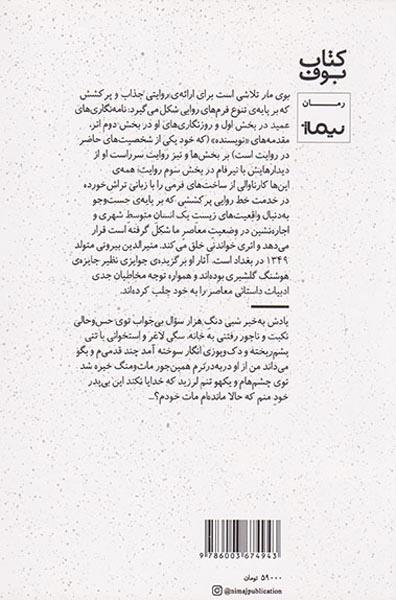 کتاب
بوف
رمان
نیماژ
بوی مار تلاشی است برای ارائه‌ی روایتی جذاب و پرکشش
که بر پایه‌ی تنوع فرم‌های روایی شکل می‌گیرد: نامه‌نگاری‌های
عمید در بخش اول و روزنگاری‌های او در بخش دوم اثر،
مقدمه‌های «نویسنده» (که خود یکی از شخصیت‌های حاضر
در روایت است) بر بخش‌ها و نیز روایت سرراست او از
دیدارهایش با تیرفام در بخش سوم روایت؛ همه‌ی
این‌ها کارناوالی از ساخت‌های فرمی را با زبانی تراش‌خورده
در خدمت خط روایی پرکششی که بر پایه‌ی جست‌وجو
به‌دنبال واقعیت‌های زیست یک انسان متوسط شهری و
اجاره‌نشین در وضعیت معاصر ما شکل گرفته است قرار
می‌دهد و اثری خواندنی خلق می‌کند. منیرالدین بیروتی متولد
۱۳۴۹ در بغداد است. آثار او برگزیده‌ی جوایزی نظیر جایزه‌ی
هوشنگ گلشیری بوده‌اند و همواره توجه مخاطبان جدی
ادبیات داستانی معاصر را به خود جلب کرده‌اند.
یادش به‌خیر شبی دنگِ هزار سؤال بی‌جواب توی حس‌وحالی
نکبت و ناجور رفتنی به خانه، سگی لاغر و استخوانی با تنی
پشم‌ریخته و دک‌وپوزی انگار سوخته آمد چند قدمی‌م و بگو
می‌داند من از او دربه‌درترم همین‌جور مات‌ومنگ خیره شد
توی چشم‌هام و یکهو تنم لرزید که خدایا نکند این بی‌پدر
خودِ منم که حالا مانده‌ام ماتِ خودم؟...
9 786003 674943
۵۹۰۰۰ تومان
@nimajpublication